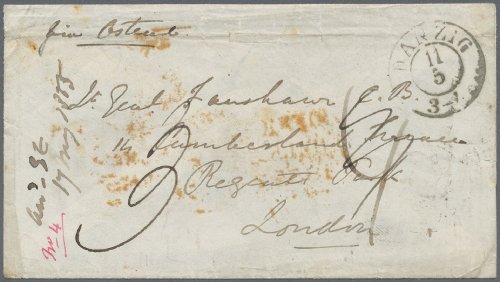 via Ostende
DANZIG
11
5
3-4
Lt Genl Fanshawe C.B.
14 Cumberland Terrace
Regents Park
London
17 May 1855
No 4